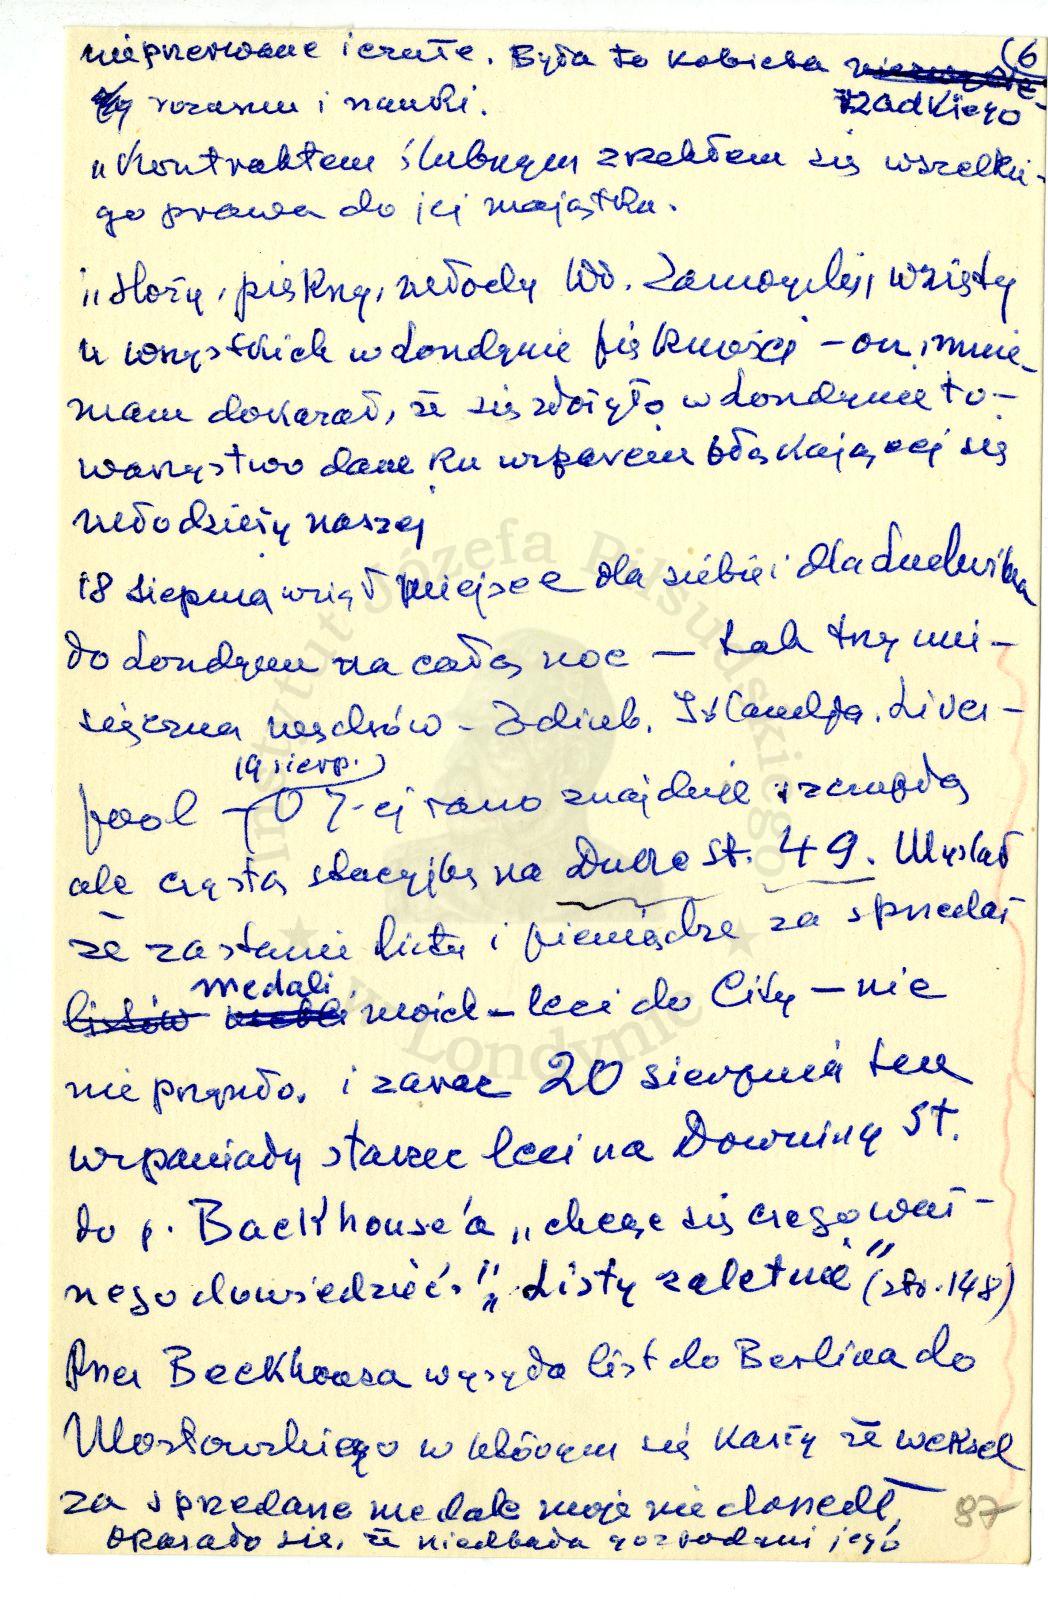 (6
nieprzerwane i czułe. Była to kobieta
rzadkiego
rozumu i nauki.
„Kontraktem ślubnym zrzekłem się wszelkie-
go prawa do jej majątku.
„Hoży, piękny, młody Wł. Zamoyski, wzięty
u wszystkich w Londynie piękności – on, mnie-
mam dokazał, że się złożyło w Londynie to-
warzystwo dam ku wsparciu błąkającej się
młodzieży naszej
18 sierpnia wziął miejsce dla siebie i dla Ludwika
do Londynu na całą noc – tak trzymie-
sięczna wędrów – Edinb. Islandja. Liver-
19 sierp.
pool – O 7-ej rano znajduje szczupłą
ale czystą stacyjkę na Duke St. 49. Myślał
że zastanie listy i pieniądze za sprzedaż
medali
listów mebli moich – leci do City – nic
nie przyszło. i zaraz 20 sierpnia ten
wspaniały starzec leci na Downing St.
do p. Backhouse'a „chcąc się czegoś waż-
nego dowiedzieć." „Listy zaletne" (str. 148)
Przez Beckhousa wysyła list do Berlina do
Mostowskiego w którym się karży że weksel
za sprzedane medale moje nie doszedł,
Okazało się, że niedbała gospodyni jego
87
Instytut Józefa Piłsudskiego
w Londynie